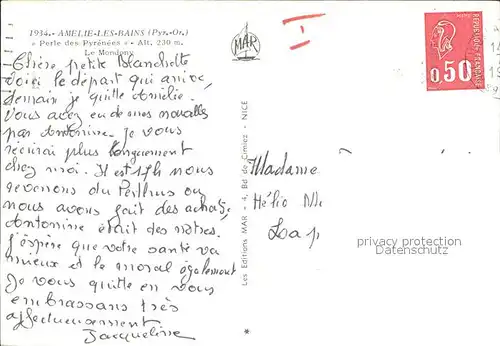 1934.- AMELIE-LES-BAINS (Pyr.-Or.)
« Perle des Pyrénées » - Alt. 230 m.
Le Mondony
Chère petite Blanchette
Voici le départ qui arrive,
demain je quitte Amélie.
Vous avez eu de mes nouvelles
par Antonine. Je vous
écrirai plus longuement
chez moi. Il est 17h nous
revenons du Perthus ou
nous avons fait des achats,
Antonine était des nôtres.
J'éspère que votre santé va
mieux et le moral également
Je vous quitte en vous
embrassans très
affectueusement
Jacqueline
MAR
Les Editions MAR - 4, Bd de Cimiez - NICE
*
REPUBLIQUE FRANCAISE
0,50
Madame
Hélio
privacy protection
Datenschutz